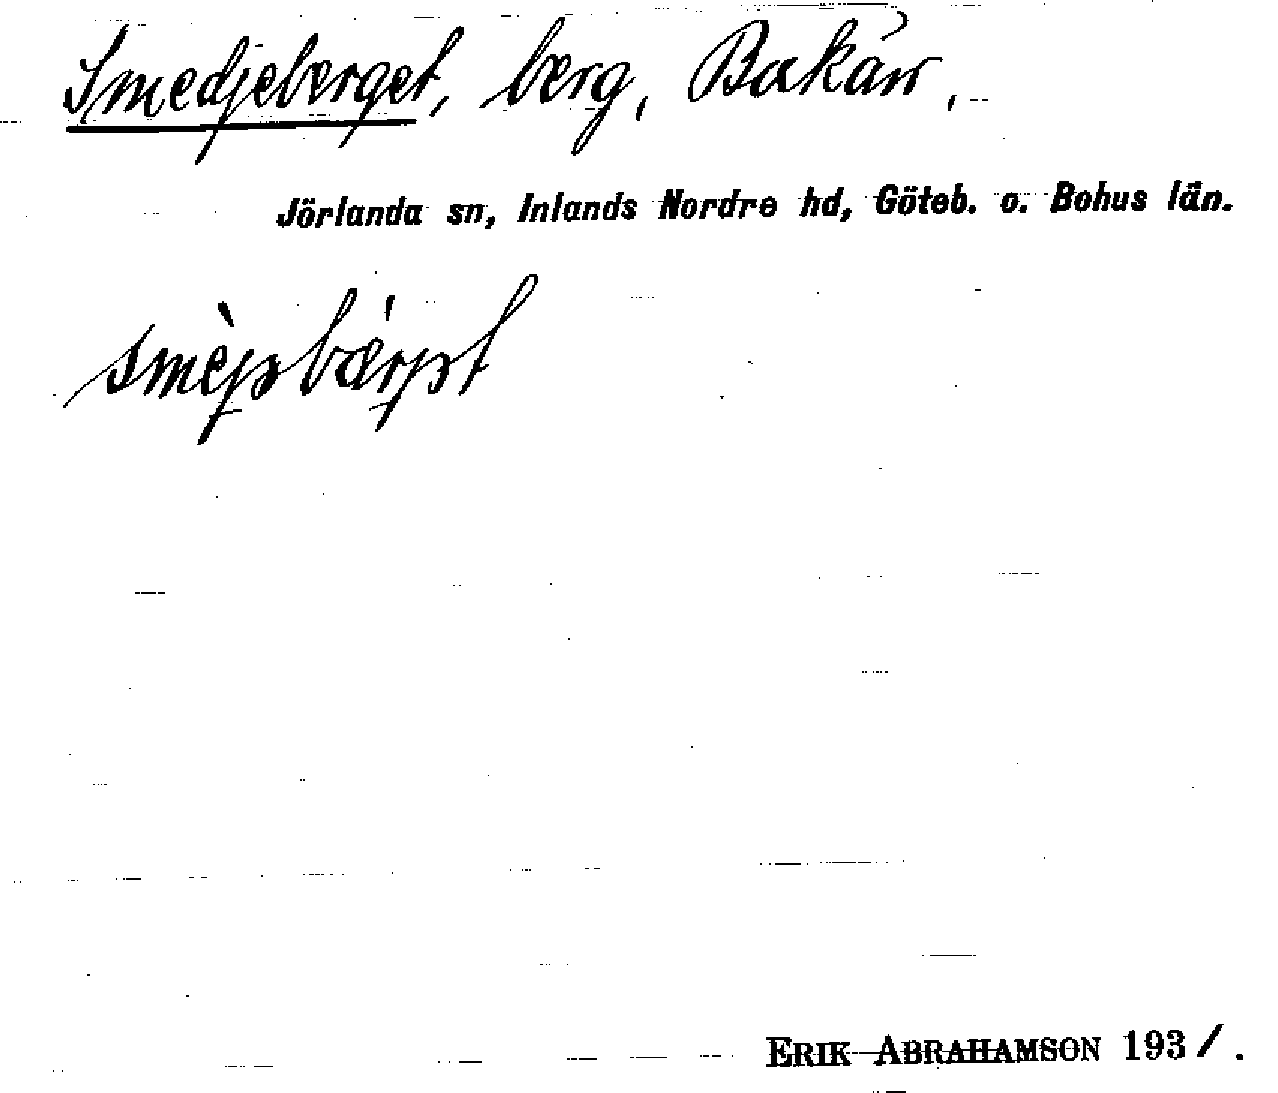 Smedjeberget, berg, Bakån,
Jörlanda sn, Inlands Nordre hd, Göteb. o. Bohus län.
ERIK ABRAHAMSON 1931.